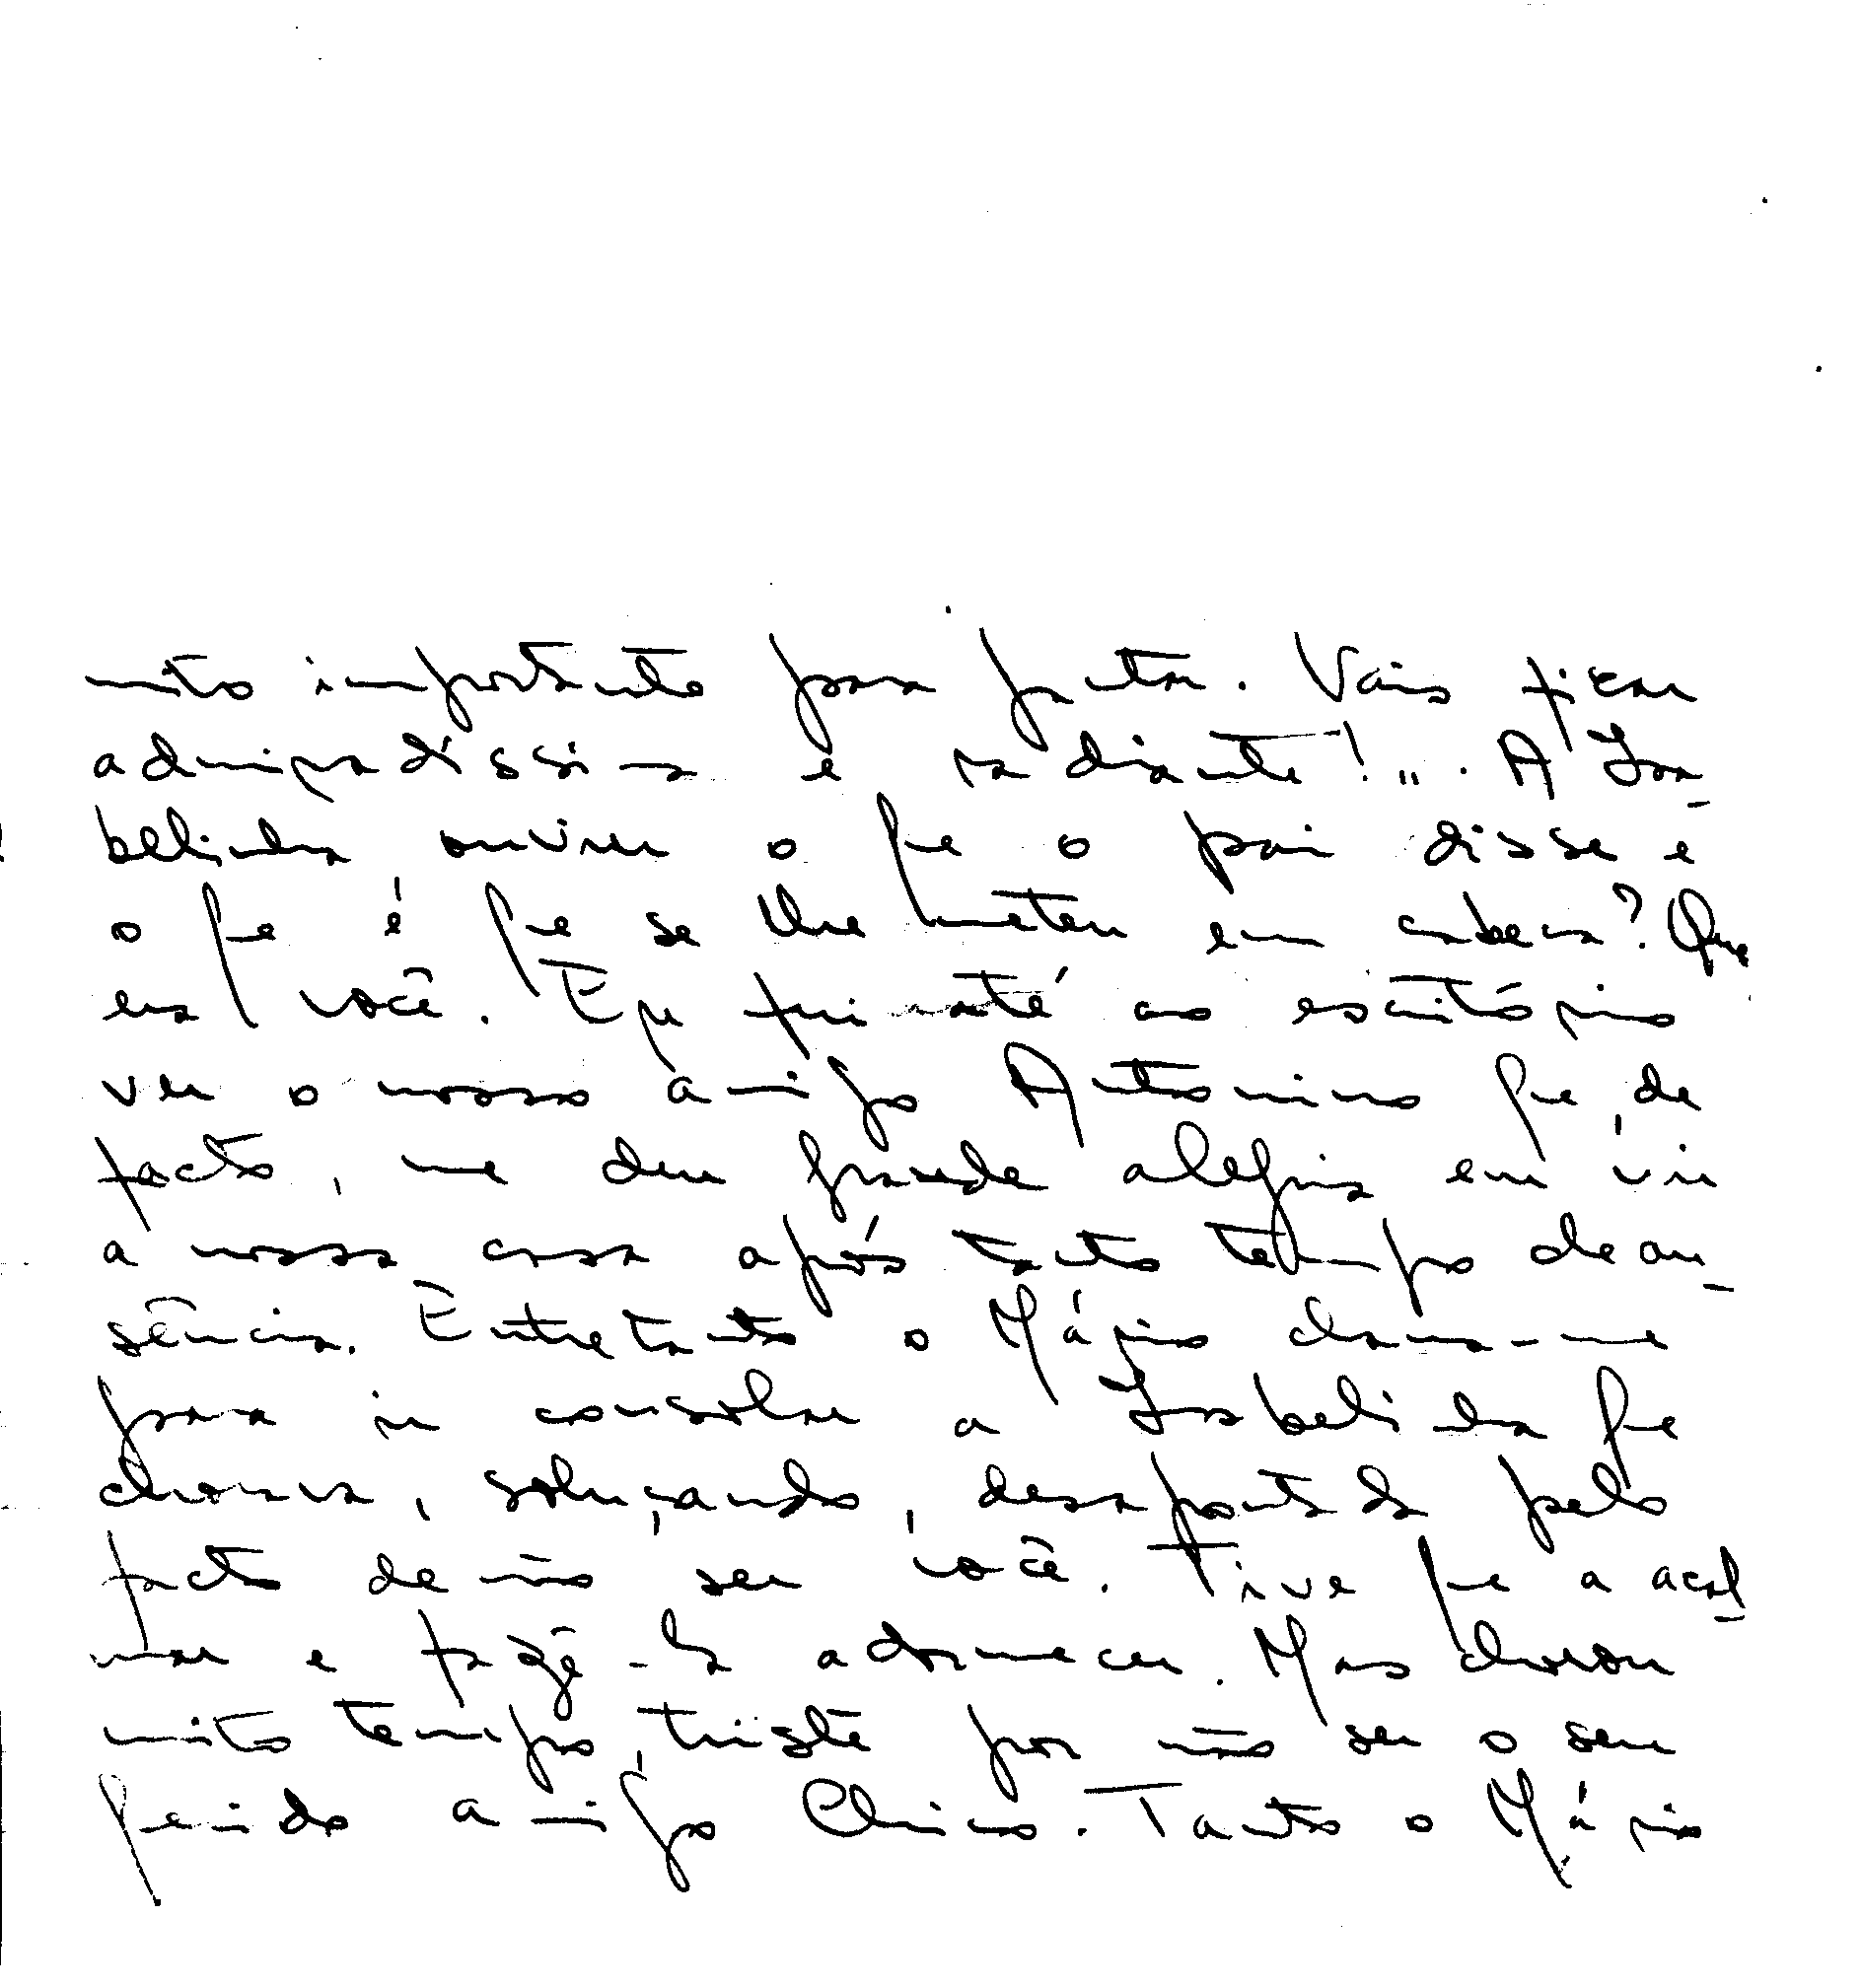 muito importante para jantar. Vais ficar
admiradíssima e radiante!". A Isa-
belinha, ouvira o que o pai disse e
o que é que se lhe meteu em cabeça? Que
era você. E fui até ao escritório
ver o nosso amigo Antonino que, de
facto, me deu grande alegria em vir
a nossa casa após tanto tempo de au-
sência. Entretanto o Mário chama-me
para ir consolar a Isabelinha que
chorava, soluçando, desapontada pelo
facto de não ser você. Tive que a acal-
mar e fazê-la adormecer. Mas chorou
muito tempo, triste por não ser o seu
querido amigo Chico. Tanto o Mário